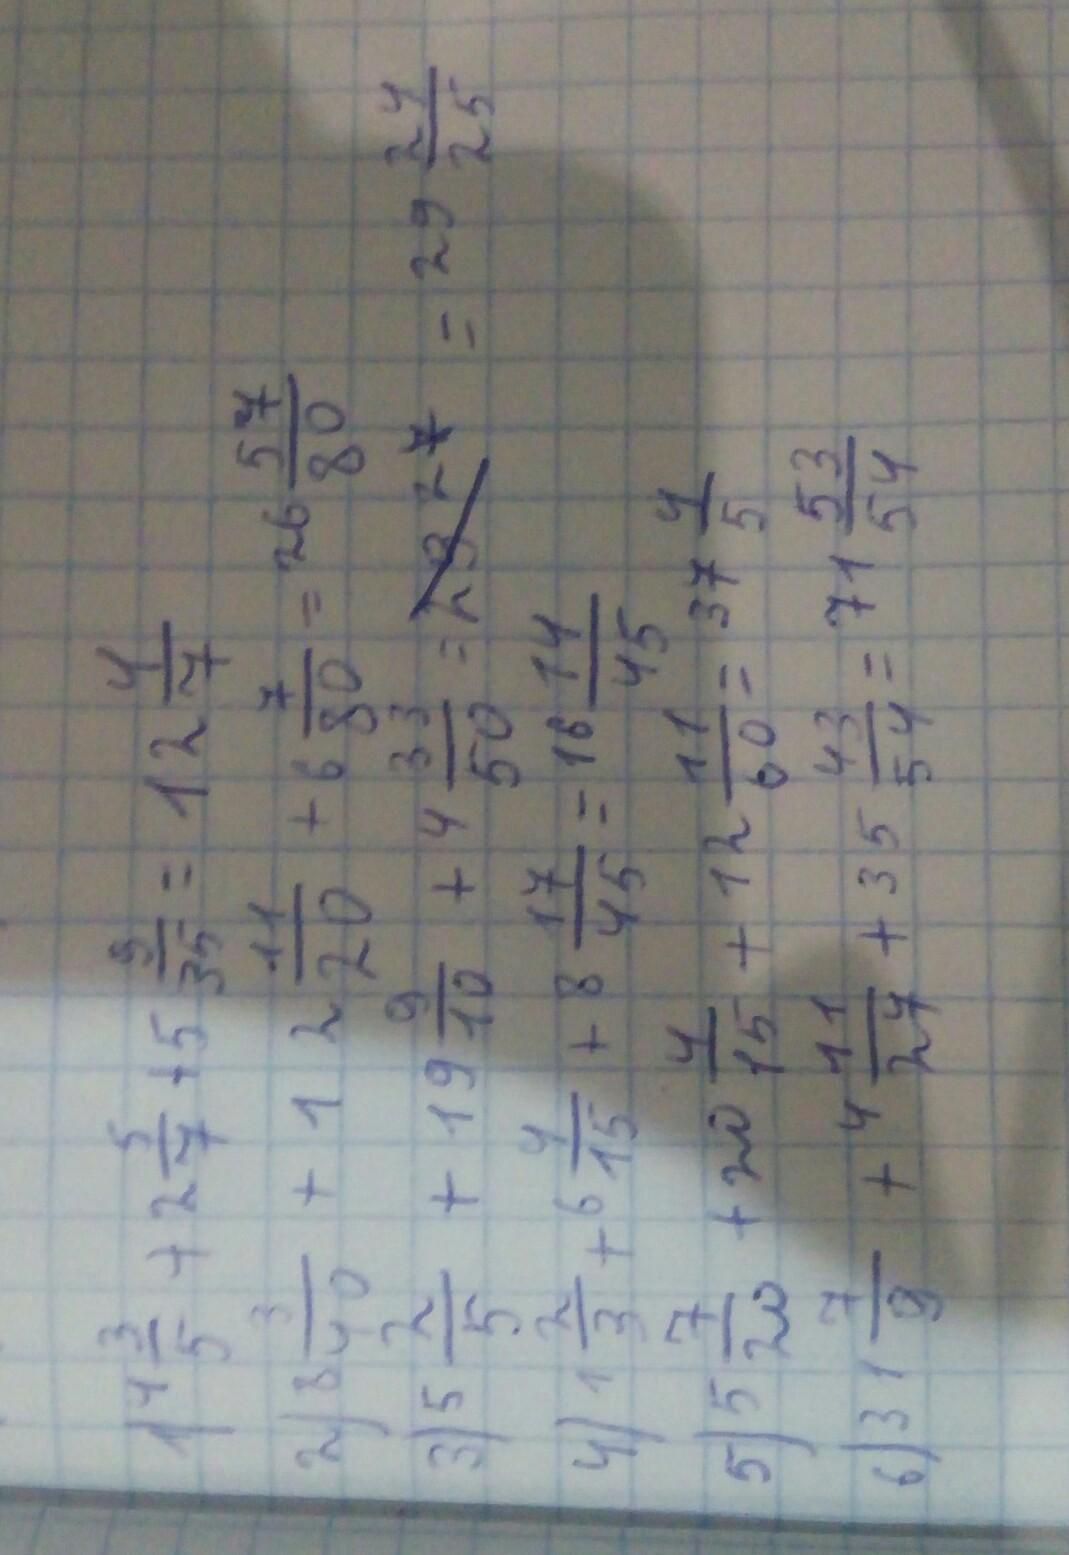 1) 4 3/5 + 2 5/7 + 5 9/35 = 12 4/7
2) 8 3/40 + 12 11/20 + 6 7/80 = 26 57/80
3) 5 2/5 + 19 9/10 + 4 33/50 = = 29 24/25
4) 1 2/3 + 6 4/15 + 8 17/45 = 16 14/45
5) 5 7/20 + 20 4/15 + 12 11/60 = 37 4/5
6) 31 7/9 + 4 11/24 + 35 43/54 = 71 53/54